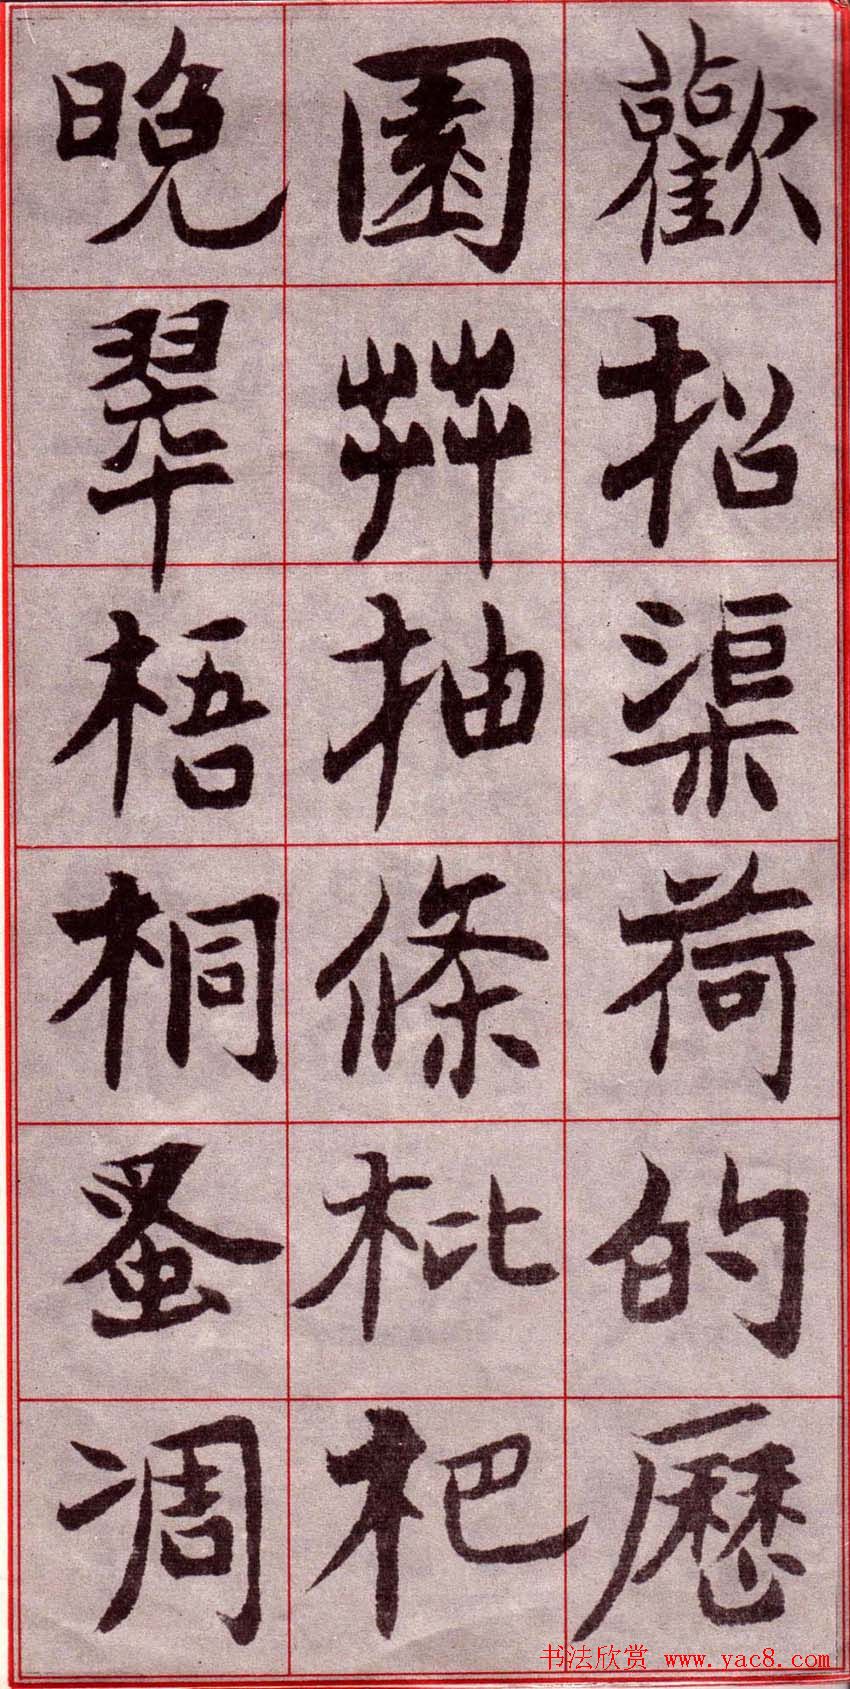 歡招渠荷的歷
園莽抽條枇杷
晚翠梧桐蚤凋
书法欣赏 www.yac8.com